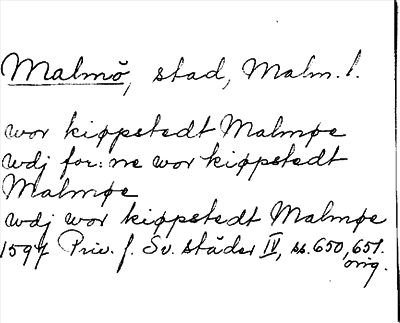 Malmö, stad, Malm. l.
wor kiøpstedt Malmøe
wdj for:ne wor kiøpstedt
Malmøe
wdj wor kiøpstedt Malmøe
1597 Priv. f. Sv. städer IV, ss. 650, 651.
orig.